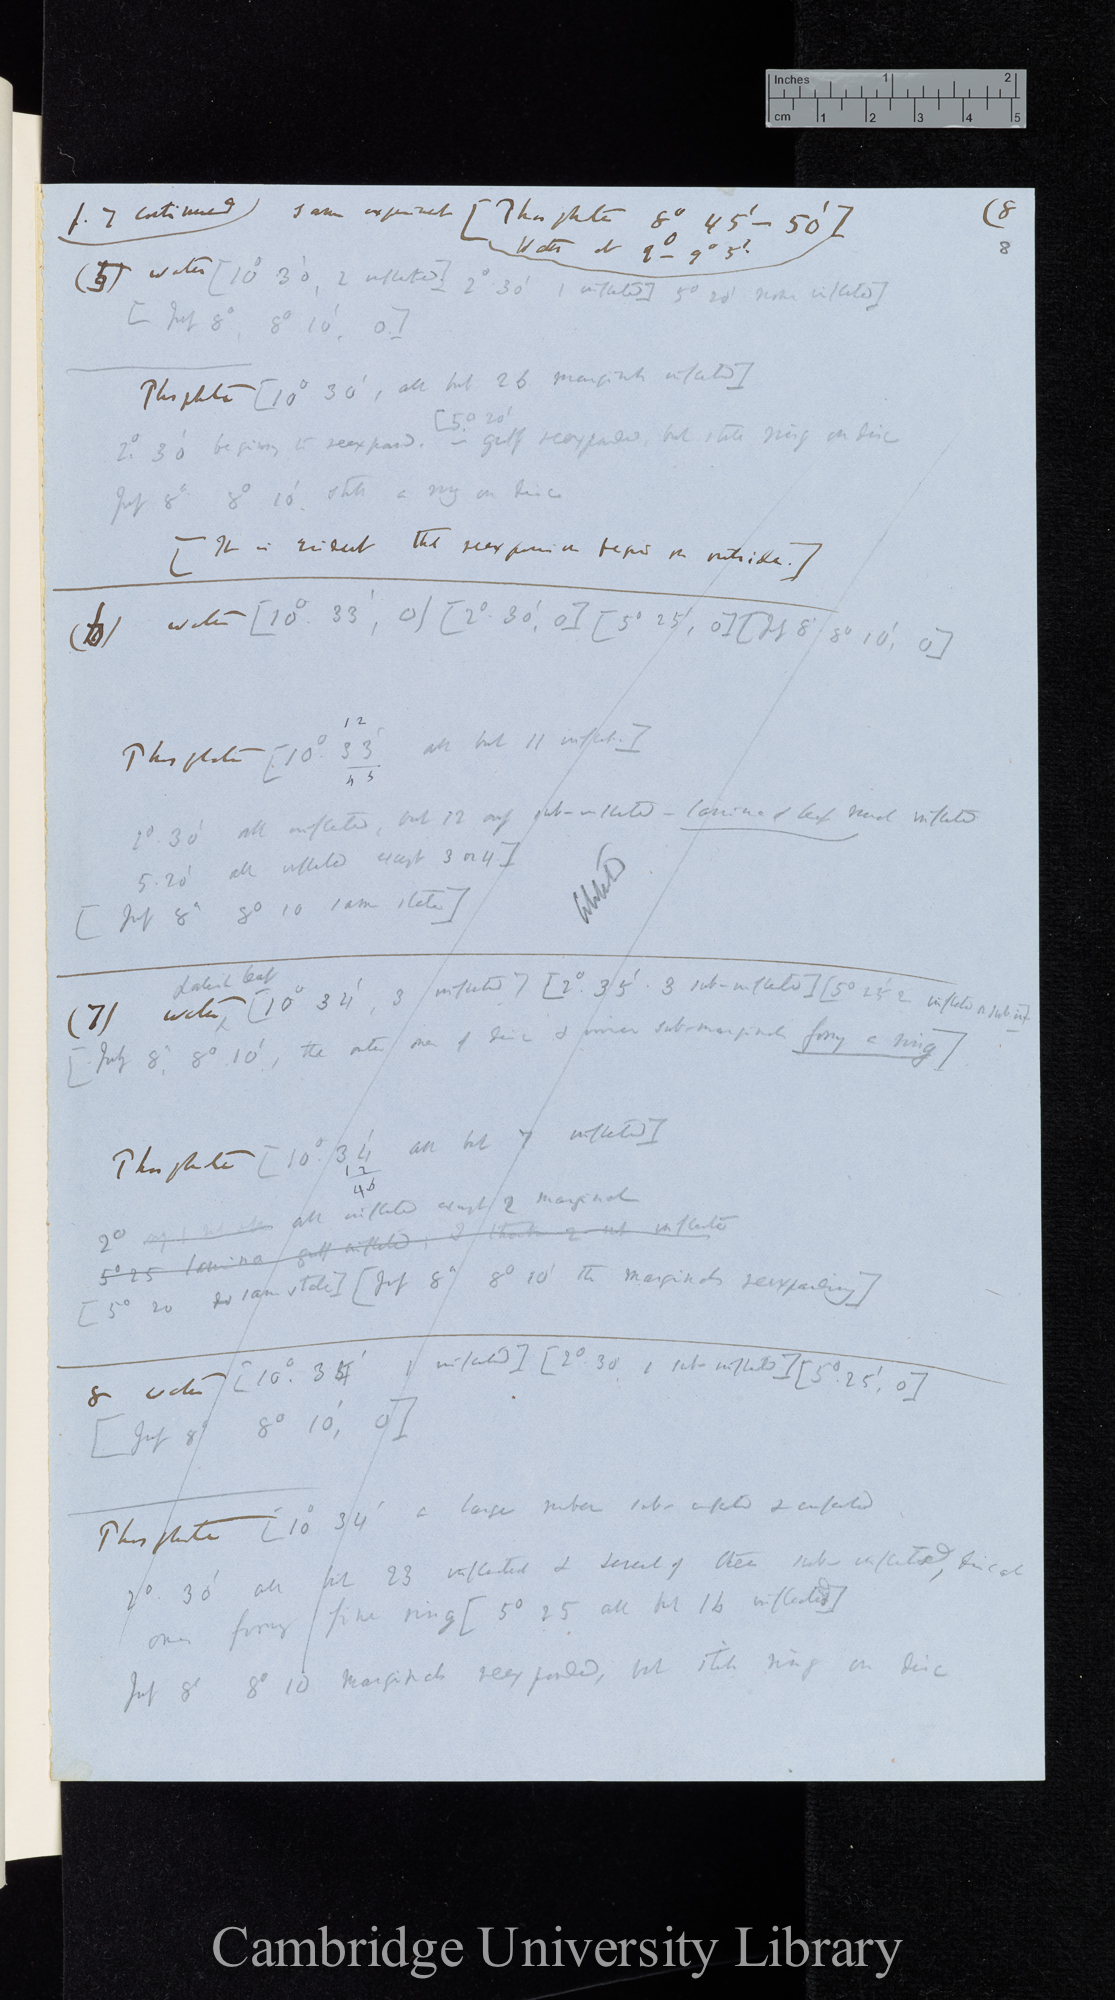 Inches 1 2
cm 1 2 3 4 5
p. 7 continued) same experiment [Phosphate 8° 45' – 50'] (8
Water at 9° – 9° 5'. 8
(5) water [10° 30', 2 inflected] 2° 30' 1 inflected] 5° 20' none inflected]
[July 8th, 8° 10', 0.]
Phosphate [10° 30', all but 26 marginals inflected]
[5° 20'
2° 30' beginning to reexpand. – greatly reexpanded, but still ring on disc
July 8th 8° 10' still a ring on disc
[It is evident the reexpansion begins on outside.]
(6) water [10° 33', 0] [2° 30', 0] [5° 25', 0] [July 8 8° 10', 0]
12
Phosphate [10° 33' all but 11 inflect.]
45
2° 30' all inflected, but 12 only sub-inflected – lamina of leaf much inflected
5. 20' all inflected except 3 or 4]
[July 8th 8° 10 same state]
Lateral leaf
(7) water [10° 34', 3 inflected] [2° 35' 3 sub-inflected] [5° 25' 2 inflected or sub inf
[July 8, 8° 10', the outer ones of disc & inner sub-marginals formg a ring]
Phosphate [10° 34' all but 7 inflected]
12
46
2° all inflected except 2 marginals
5° 25 lamina greatly inflected, 2 not inflected
[5° 20 same state] [July 8th 8° 10' the marginals reexpanding]
8 water [10° 34' 1 inflected] [2° 30 1 sub-inflected] [5° 25', 0]
[July 8th 8° 10', 0]
Phosphate [10° 34' a large number sub-inflected & inflected
2° 30' all but 23 inflected & several of these sub-inflected, discal
ones formg fine ring [5° 25 all but 16 inflected]
July 8th 8° 10 marginals reexpanded, but still ring on disc
Cambridge University Library